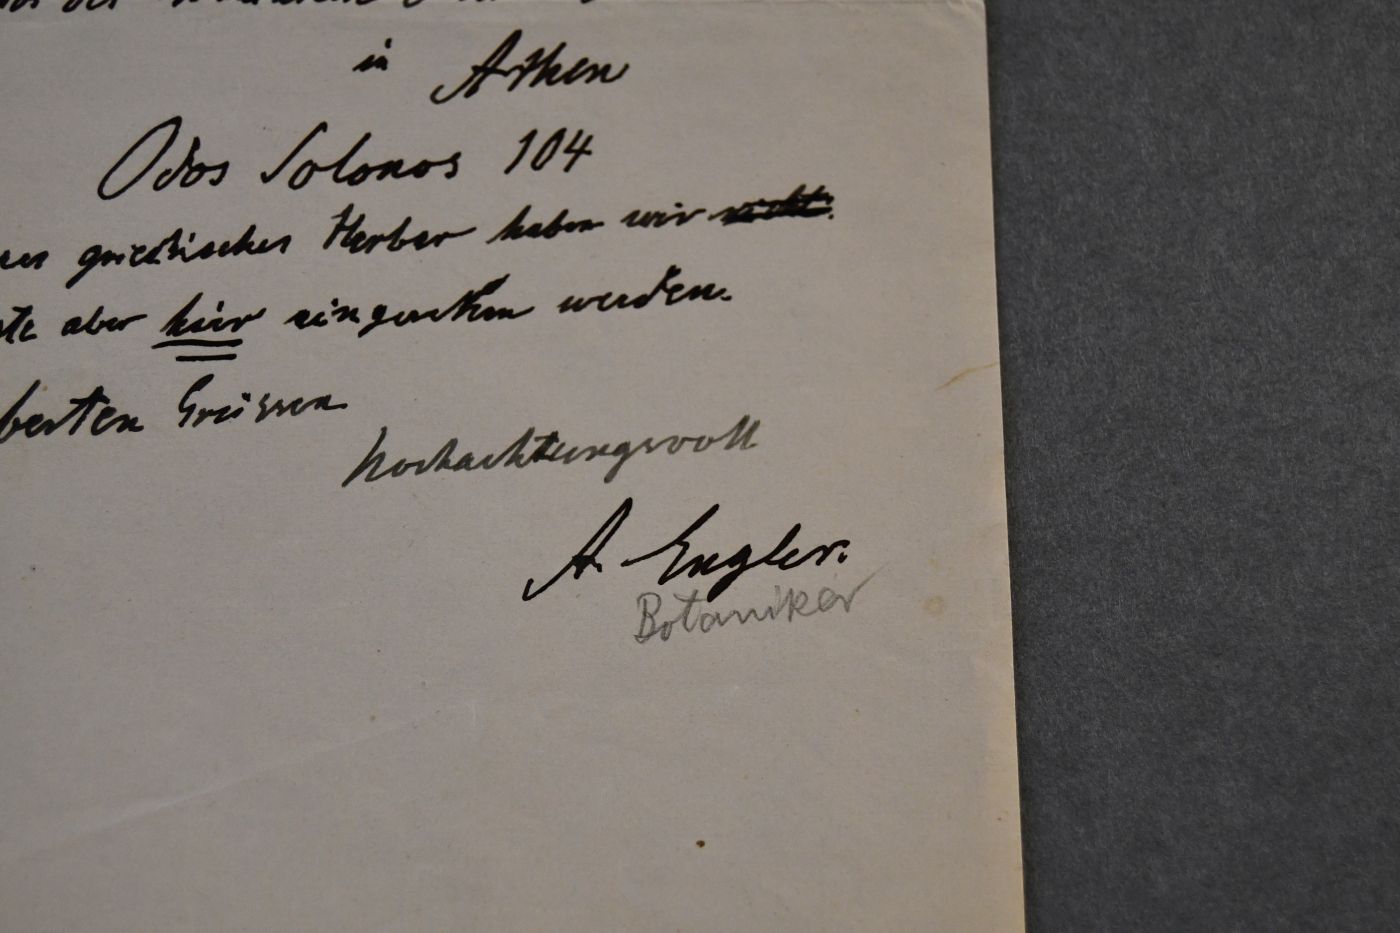 in Athen
Odos Solonos 104
griechisches Herbar haben wir nicht.
aber hier eingesehen werden.
Grüssen
hochachtungsvoll
A. Engler.
Botaniker